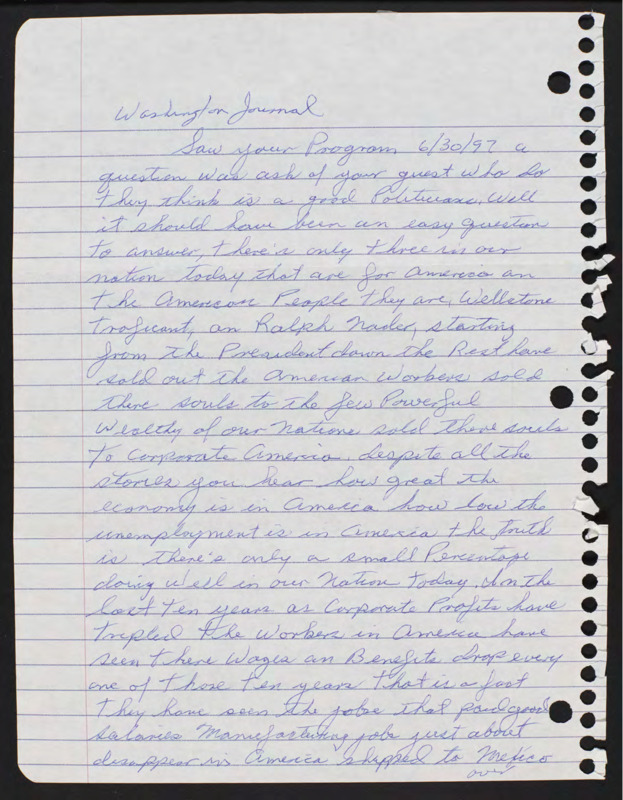 Washington Journal
Saw your Program 6/30/97 a
question was ask of your guest who do
they think is a good Politician, Well
it should have been an easy question
to answer, there's only three in our
nation today that are for America an
the American People they are, Wellstone
Traficant, an Ralph Nader, starting
from the President down the Rest have
sold out the American Workers sold
there souls to the few Powerful
Wealthy of our Nation sold there souls
to Corporate America. despite all the
stories you hear how great the
economy is in America how low the
unemployment is in America the truth
is there's only a small Percentage
doing well in our Nation Today. In the
last ten years as Corporate Profits have
tripled the Workers in America have
seen there Wages an Benefits drop every
one of those ten years that is a fact
they have seen the jobs that paid good
salaries Manufacturing jobs just about
disappear in America shipped to Mexico
over